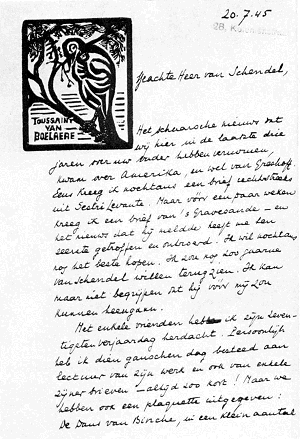 20.7.45
TOUSSAINT
VAN
BOELAERE
Geachte Heer van Schendel,
Het schaarsche nieuws dat
wij hier, in de laatste drie
jaren over uw vader hebben vernomen,
kwam over Amerika, en wel van Greshoff.
Eens kreeg ik nochtans een brief rechtstreeks
uit Sestri Levante. Maar vóór een paar weken
kreeg ik een brief van 's Gravesande – en
het nieuws dat hij meldde heeft me ten
zeerste getroffen en ontroerd. Ik wil nochtans
nog het beste hopen. Ik zou nog zoo gaarne
van Schendel willen terugzien. Ik kan
maar niet begrijpen dat hij vóór mij zou
kunnen heengaan.
Met enkele vrienden heb ik zijn zeven-
tigsten verjaardag herdacht. Persoonlijk
heb ik dien ganschen dag besteed aan
lectuur van zijn werk en ook van enkele
zijner brieven – altijd zoo kort! Maar we
hebben ook een plaquette uitgegeven:
De Dans van Binche, in een klein aantal